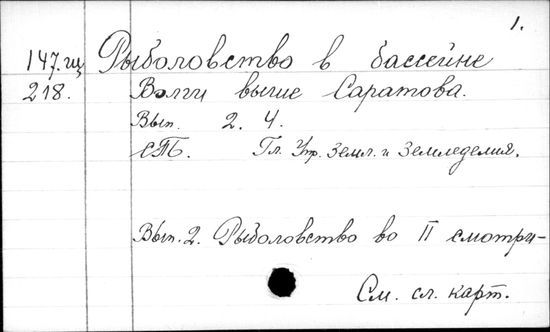 1.
147.гщ Рыболовство в бассейне
218. Волги выше Саратова.
Вып. 2. 4.
СПБ. Гл. Упр. Земл. и Земледелия.
Вып. 2. Рыболовство во II смотри-
См. сл. карт.